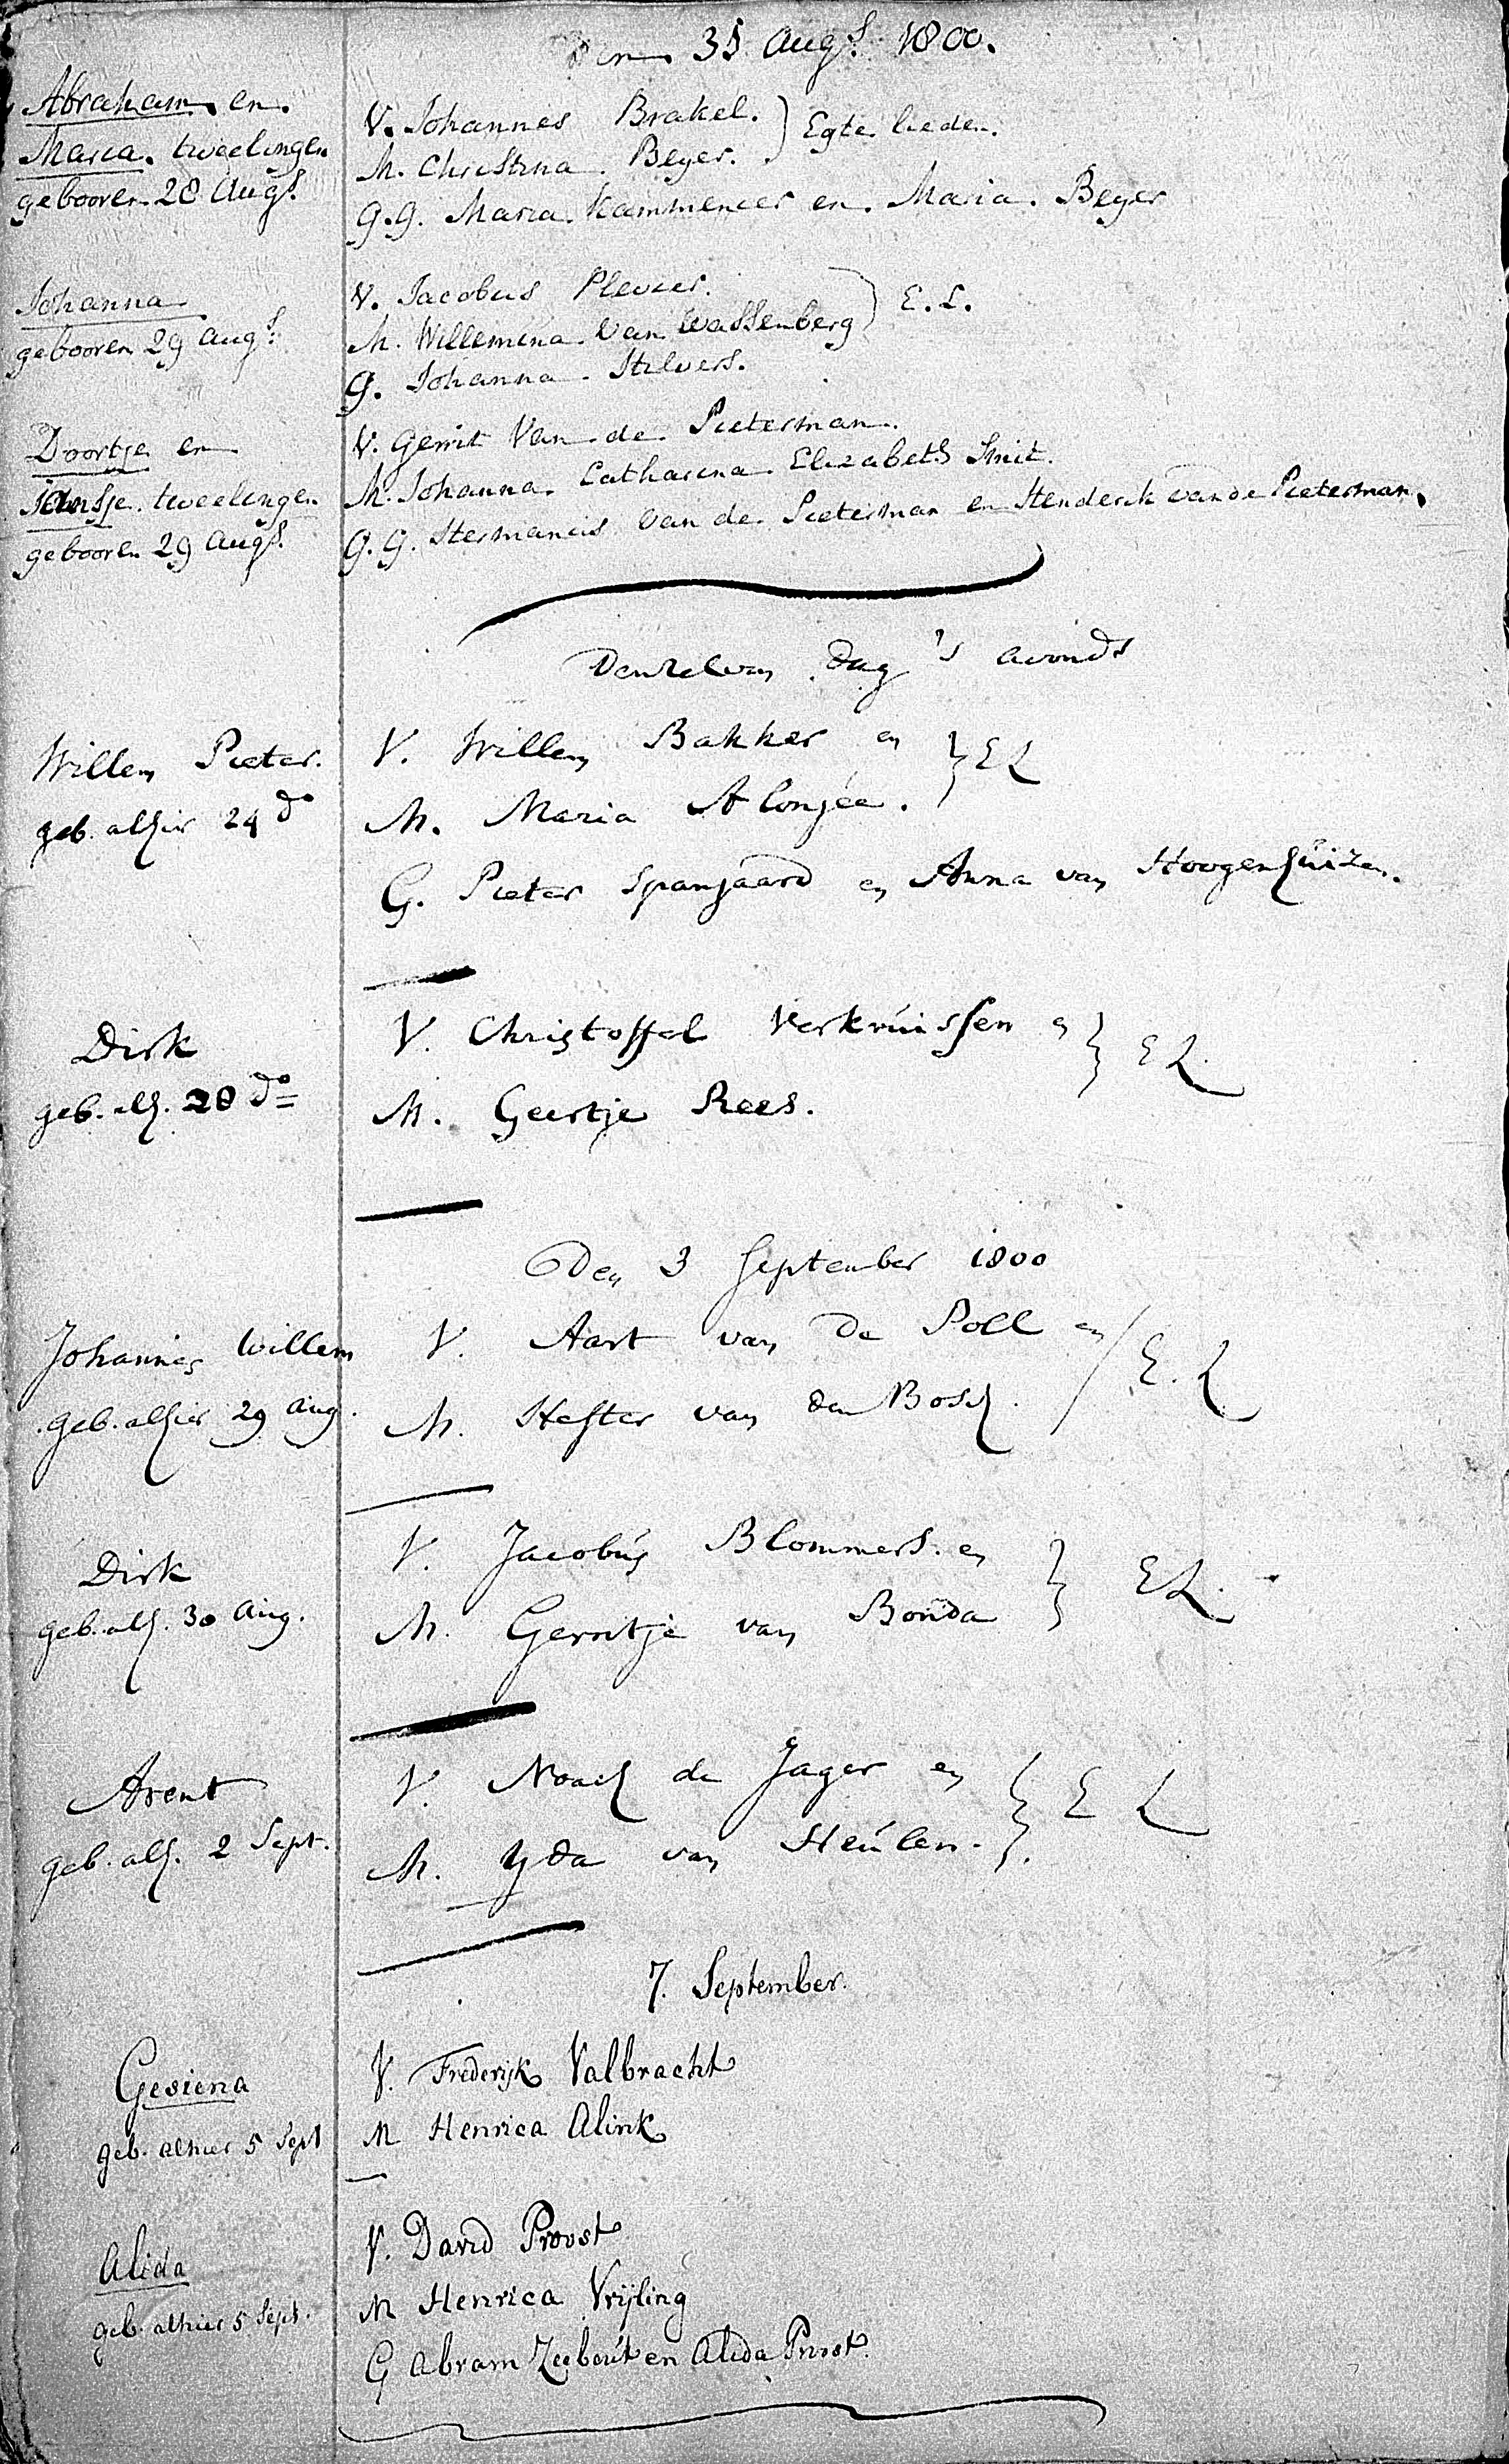 Den 31 Augs. 1800.
Abraham en
Maria. tweelingen
gebooren 28 Augs.
V. Johannes Brakel. } Egte lieden.
M. Christina Beyer.
G.G. Maria Kammencer en Maria Beyer
Johanna
gebooren 29 Augs.
V. Jacobus Plevier. } E.L.
M. Willemina van Wassenberg
G. Johanna Hilvers.
Doortje en
Jansje. tweelingen
gebooren 29 Augs.
V. Gerrit van de Pieterman.
M. Johanna Catharina Elizabeth Smit.
G.G. Hermanus van de Pieterman en Henderik van de Pieterman.
Denzelven dag 's avonds
Willem Pieter.
geb. alhier 24 do
V. Willem Bakker en } E L
M. Maria Alonjée.
G. Pieter Spanjaard en Anna van Hoogenhuizen.
Dirk
geb. alh. 28 do
V. Christoffel Verkruissen en } E L
M. Geertje Rees.
Den 3 September 1800
Johannes Willem
geb. alhier 29 Aug.
V. Aart van de Poll en / E. L
M. Hester van den Bosch.
Dirk
geb. alh. 30 Aug.
V. Jacobus Blommers. en } E L.
M. Gerritje van Bonda
Arent
geb. alh. 2 Sept.
V. Noach de Jager en } E L
M. Yda van Heulen.
7. September.
Gesiena
geb. alhier 5 Sept
V. Frederijk Valbracht
M Henrica Alink
Alida
geb. alhier 5 Sept.
V. David Proost
M Henrica Vrijling
G Abram Zeebout en Alida Proost.